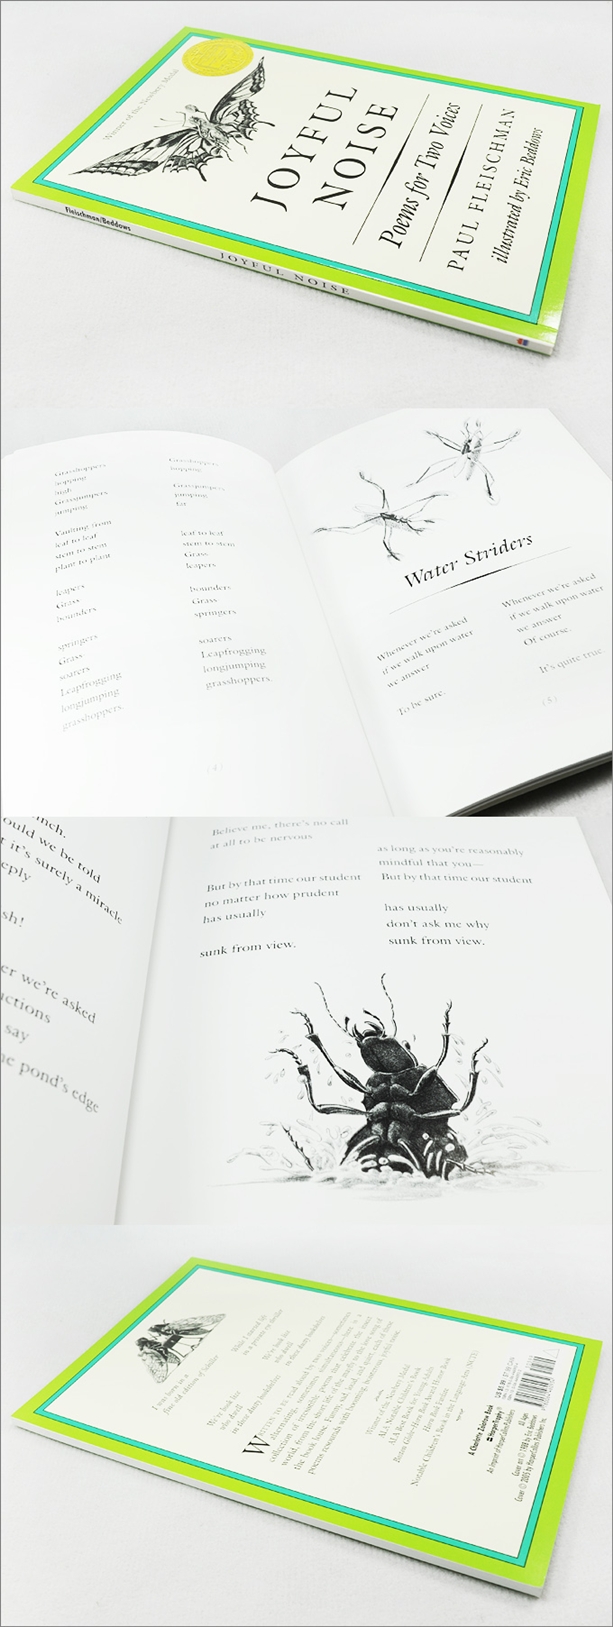 Winner of the Newbery Medal
JOYFUL
NOISE
Poems for Two Voices
PAUL FLEISCHMAN
illustrated by Eric Beddows
Fleischman/Beddows
JOYFUL NOISE
Grasshoppers
hopping
high
Grassjumpers
jumping
Vaulting from
leaf to leaf
stem to stem
plant to plant
leapers
Grass
bounders
springers
Grass
soarers
Leapfrogging
longjumping
grasshoppers.
Grasshoppers
hopping
Grassjumpers
jumping
far
leaf to leaf
stem to stem
Grass
leapers
bounders
Grass
springers
soarers
Leapfrogging
longjumping
grasshoppers.
(4)
Water Striders
Whenever we're asked
if we walk upon water
we answer
To be sure.
Whenever we're asked
if we walk upon water
we answer
Of course.
It's quite true.
(5)
inch.
ould we be told
it's surely a miracle
eply
sh!
er we're asked
uctions
say
he pond's edge
Believe me, there's no call
at all to be nervous
But by that time our student
no matter how prudent
has usually
sunk from view.
as long as you're reasonably
mindful that you—
But by that time our student
has usually
don't ask me why
sunk from view.
I was born in a
fine old edition of Schiller
While I started life
in a private eye thriller
We're book lice
who dwell
in these dusty bookshelves
We're book lice
who dwell
in these dusty bookshelves
Winner of the Newbery Medal
ALA Notable Children's Book
A Charlotte Zolotow Book
HarperTrophy
An Imprint of HarperCollinsPublishers
All Ages
Cover art © 1988 by Eric Beddows
Cover © 2005 by HarperCollins Publishers Inc.